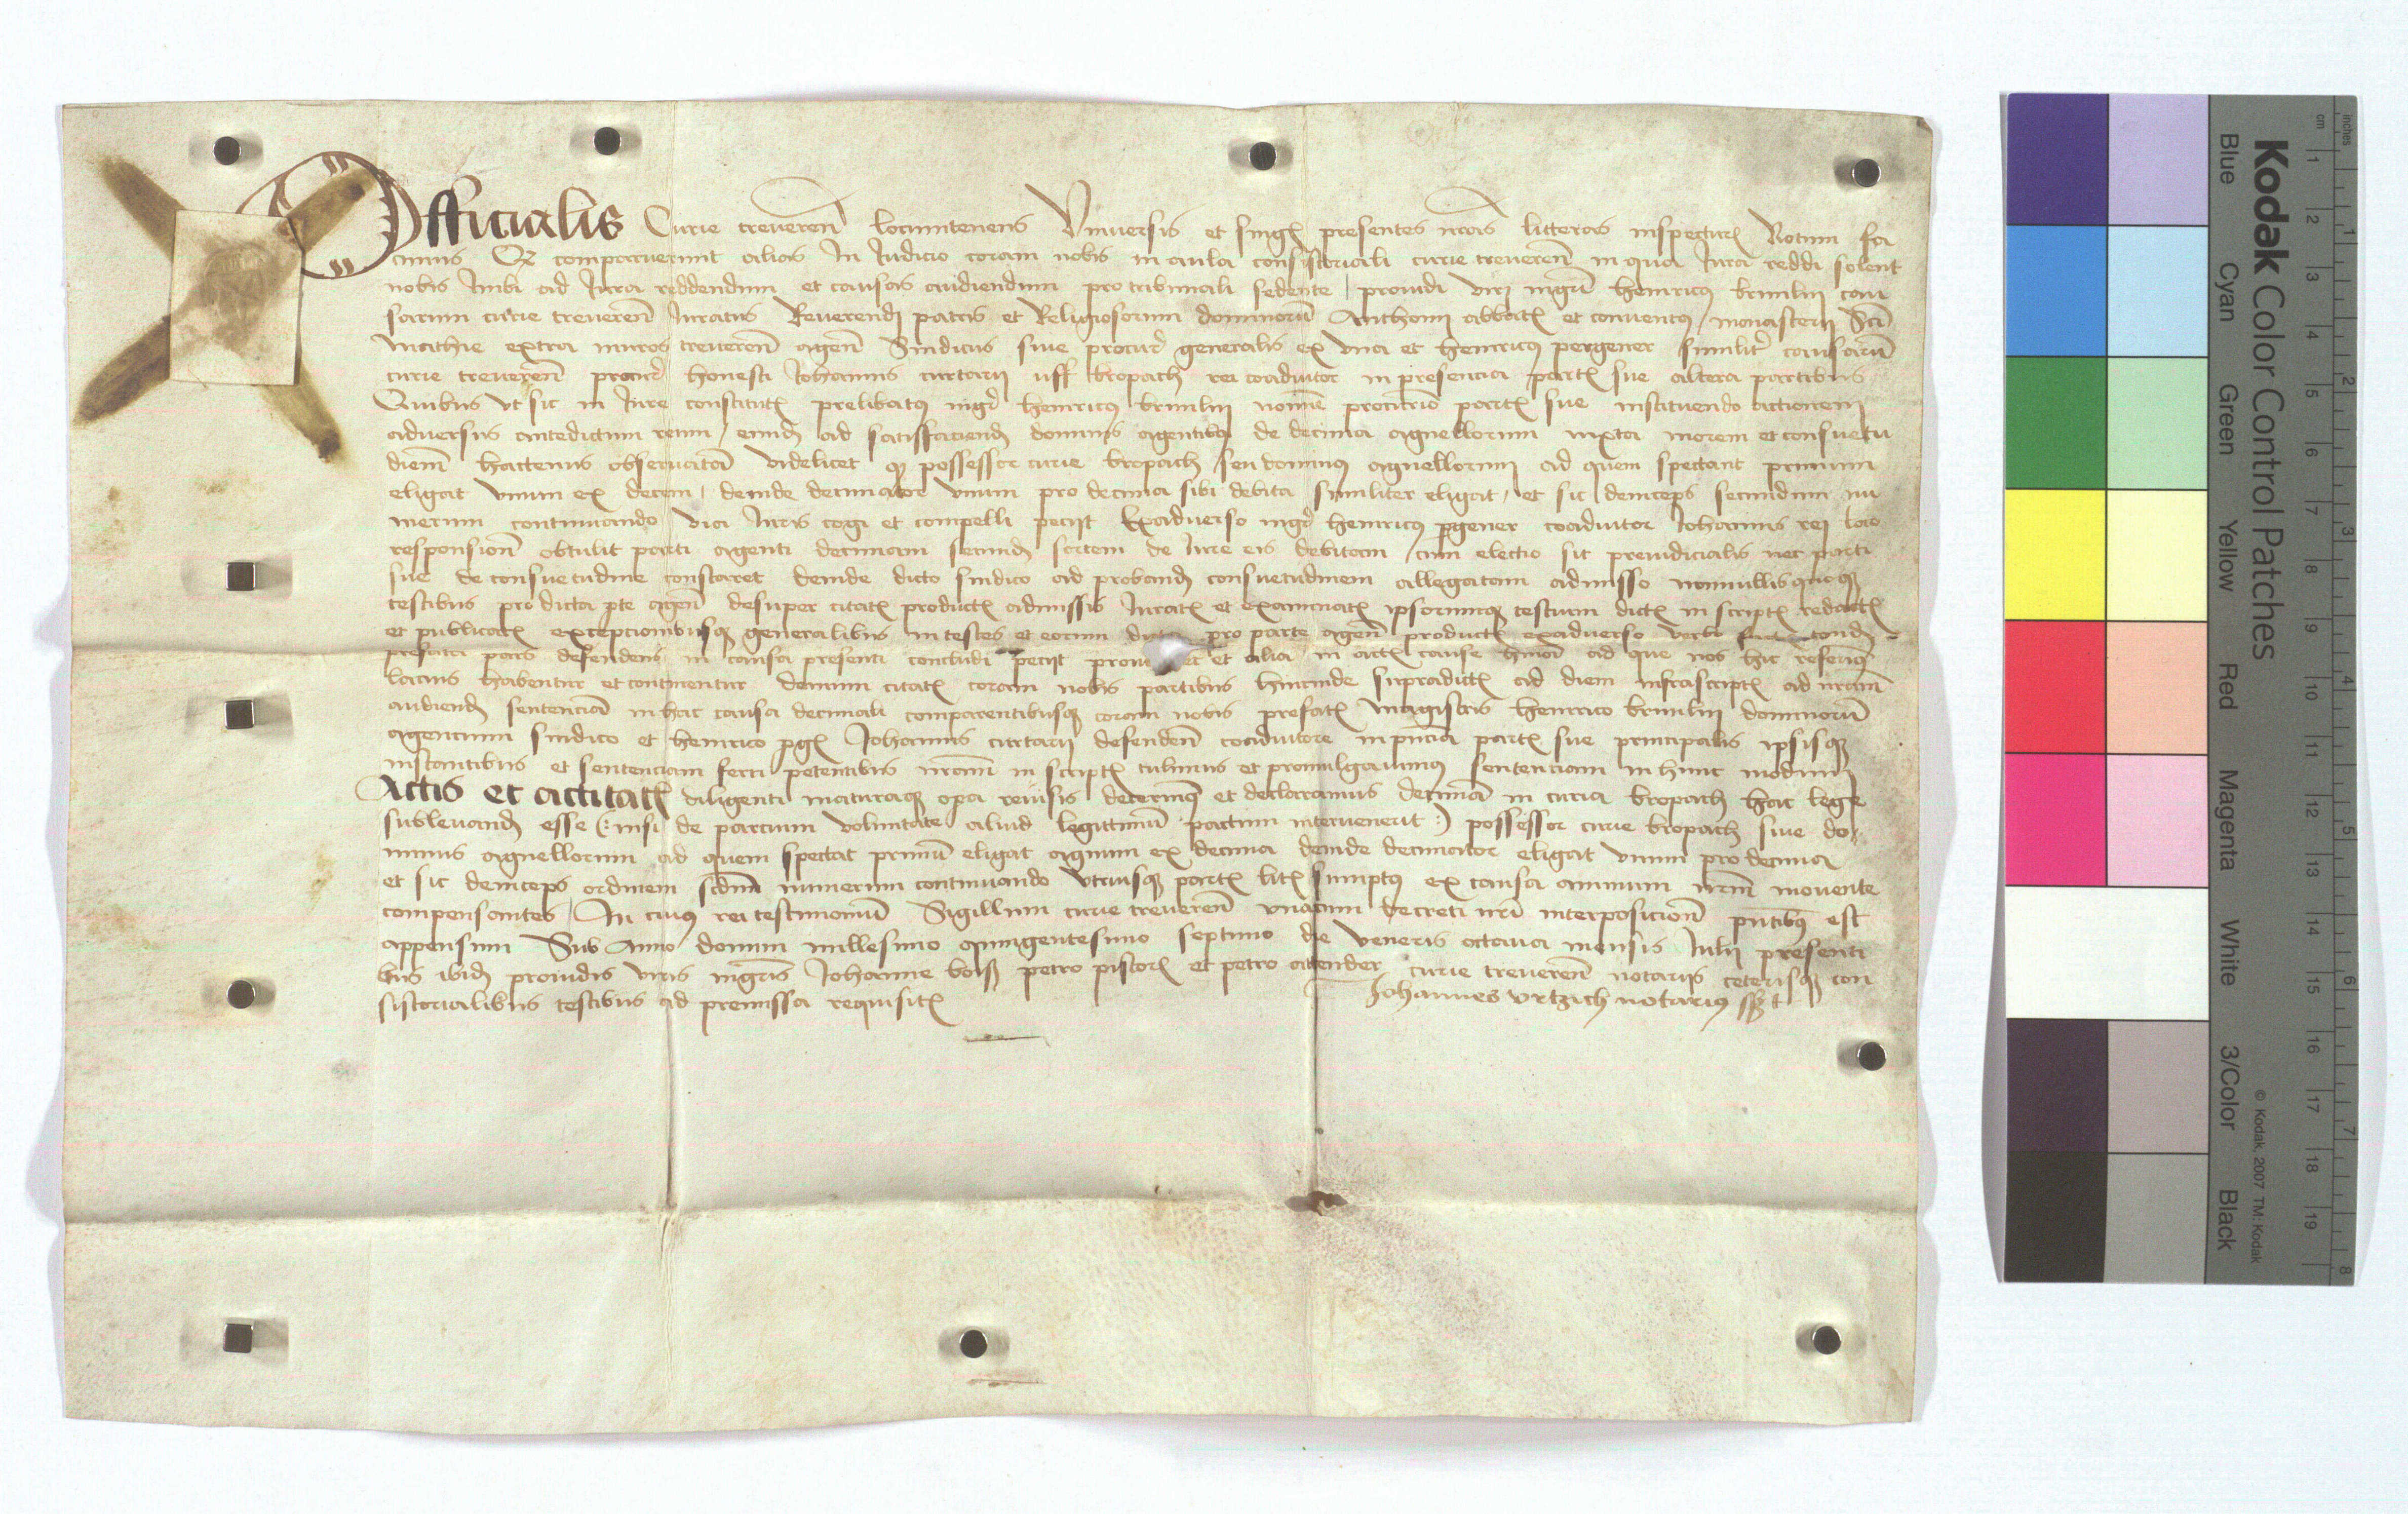 Officialis Curie treveren̄ locumtenens Vniuersis et singl̄ presentes nr̄as litteras inspectur̄ Notum fa
cimus Qz comparuerunt alias In Iudicio coram nobis in aula consistoriali curie treveren̄ in qua Iura reddi solent
nobis Inibi ad Iura reddendum et causas audiendum pro tribunali sedente / prouidi viri mgr̄i henricus brunlin cau
sarum curie treveren̄ Iuratus Reuerendi patris et Religiosorum dominorū Anthonii abbatis et conuentus monasterii Scī
Mathie extra muros treveren̄ agen̄ Sindicus siue procur̄ generalis ex vna et henricus pergener similiter causarū
curie treveren̄ procur̄ honesti Iohannis curtarii uff bropach rei coadiutor in presencia partis sue altera partibus
Quibus vt sic in Iure constitutis prelibatus mgr̄ henricus brunlin nomine procur̄io partis sue instituendo actionem
aduersus antedictum reum / eundem ad satisfaciend̄ dominis agentibus de decima agnellorum iuxta morem et consuetu
dinem hactenus obseruatā videlicet q possessor curie bropach / seu dominus agnellorum ad quem spectant primum
eligat vnum ex decem / deinde decimator vnum pro decima sibi debita similiter eligat / et sic deinceps secundum nu
merum continuando via Iuris cogi et compelli peciit Exaduerso mgr̄ henricus p̱gener coadiutor Iohannis rei loco
responsion̄ obtulit parti agenti decimam secund̄ sortem de Iure eis debitam / cum electio sit preiudicialis nec parti
sue de consuetudine constaret deinde dicto sindico ad proband̄ consuetudinem allegatam admisso nonnullis quoqz
testibus pro dicta pte agen̄ desuper citatis productis admissis Iuratis et examinatis ipsorumqz testium dictis in scriptis redactis
et publicatis exceptionibusqz generalibus in testes et eorum dicta pro parte agen̄ productis exaduerso verbo
prefata pars defendens in causa presenti concludi peciit et alia in actis cause hmōi ad que nos hic referimus
lacius habentur et continentur demum citatis coram nobis partibus hincinde supradictis ad diem infrascriptū ad nr̄am
audiend̄ sentenciā in hac causa decimali comparentibusqz coram nobis prefatis Magistris henrico brunlin dominorū
agentium sindico et henrico p̱g̱ Iohannis curtarii defenden̄ coadiutore in pn̄cia partis sue principalis ipsisqz
instantibus et sentenciam ferri petentibus nr̄am in scriptis tulimus et promulgauimus sentenciam in hunc modum
Actis et actitatis diligenti maturaqz opa reuisis decernimus et declaramus decimā in curia bropach hac lege
subleuand̄ esse (: nisi de parcium voluntate aliud legittimū pactum interuenerit :) possessor curie bropach siue do-
minus agnellorum ad quem spectat primū eligat agnum ex decima deinde decimator eligat vnum pro decima
et sic deinceps ordinem scdm̄ numerum continuando vtriusqz partis litis sumptus ex causa animum nr̄m mouente
compensantes / In cuius rei testimoniū Sigillum curie treveren̄ vnacum decreti nr̄i interposicion̄ pn̄tibus est
appensum Sub Anno domini millesimo quingentesimo septimo die veneris octaua mensis Iulii presenti
bus ibidē prouidis viris mgr̄is Iohanne boiß petro pistoris et petro attender curie treveren̄ notariis ceterisqz con
sistorialibus testibus ad premissa requisitis
Iohannes vrtzich notarius sst
Kodak Color Control Patches
Blue Cyan Green Yellow Red Magenta White 3/Color Black
© Kodak, 2007 TM: Kodak
inches 1 2 3 4 5 6 7 8
cm 1 2 3 4 5 6 7 8 9 10 11 12 13 14 15 16 17 18 19